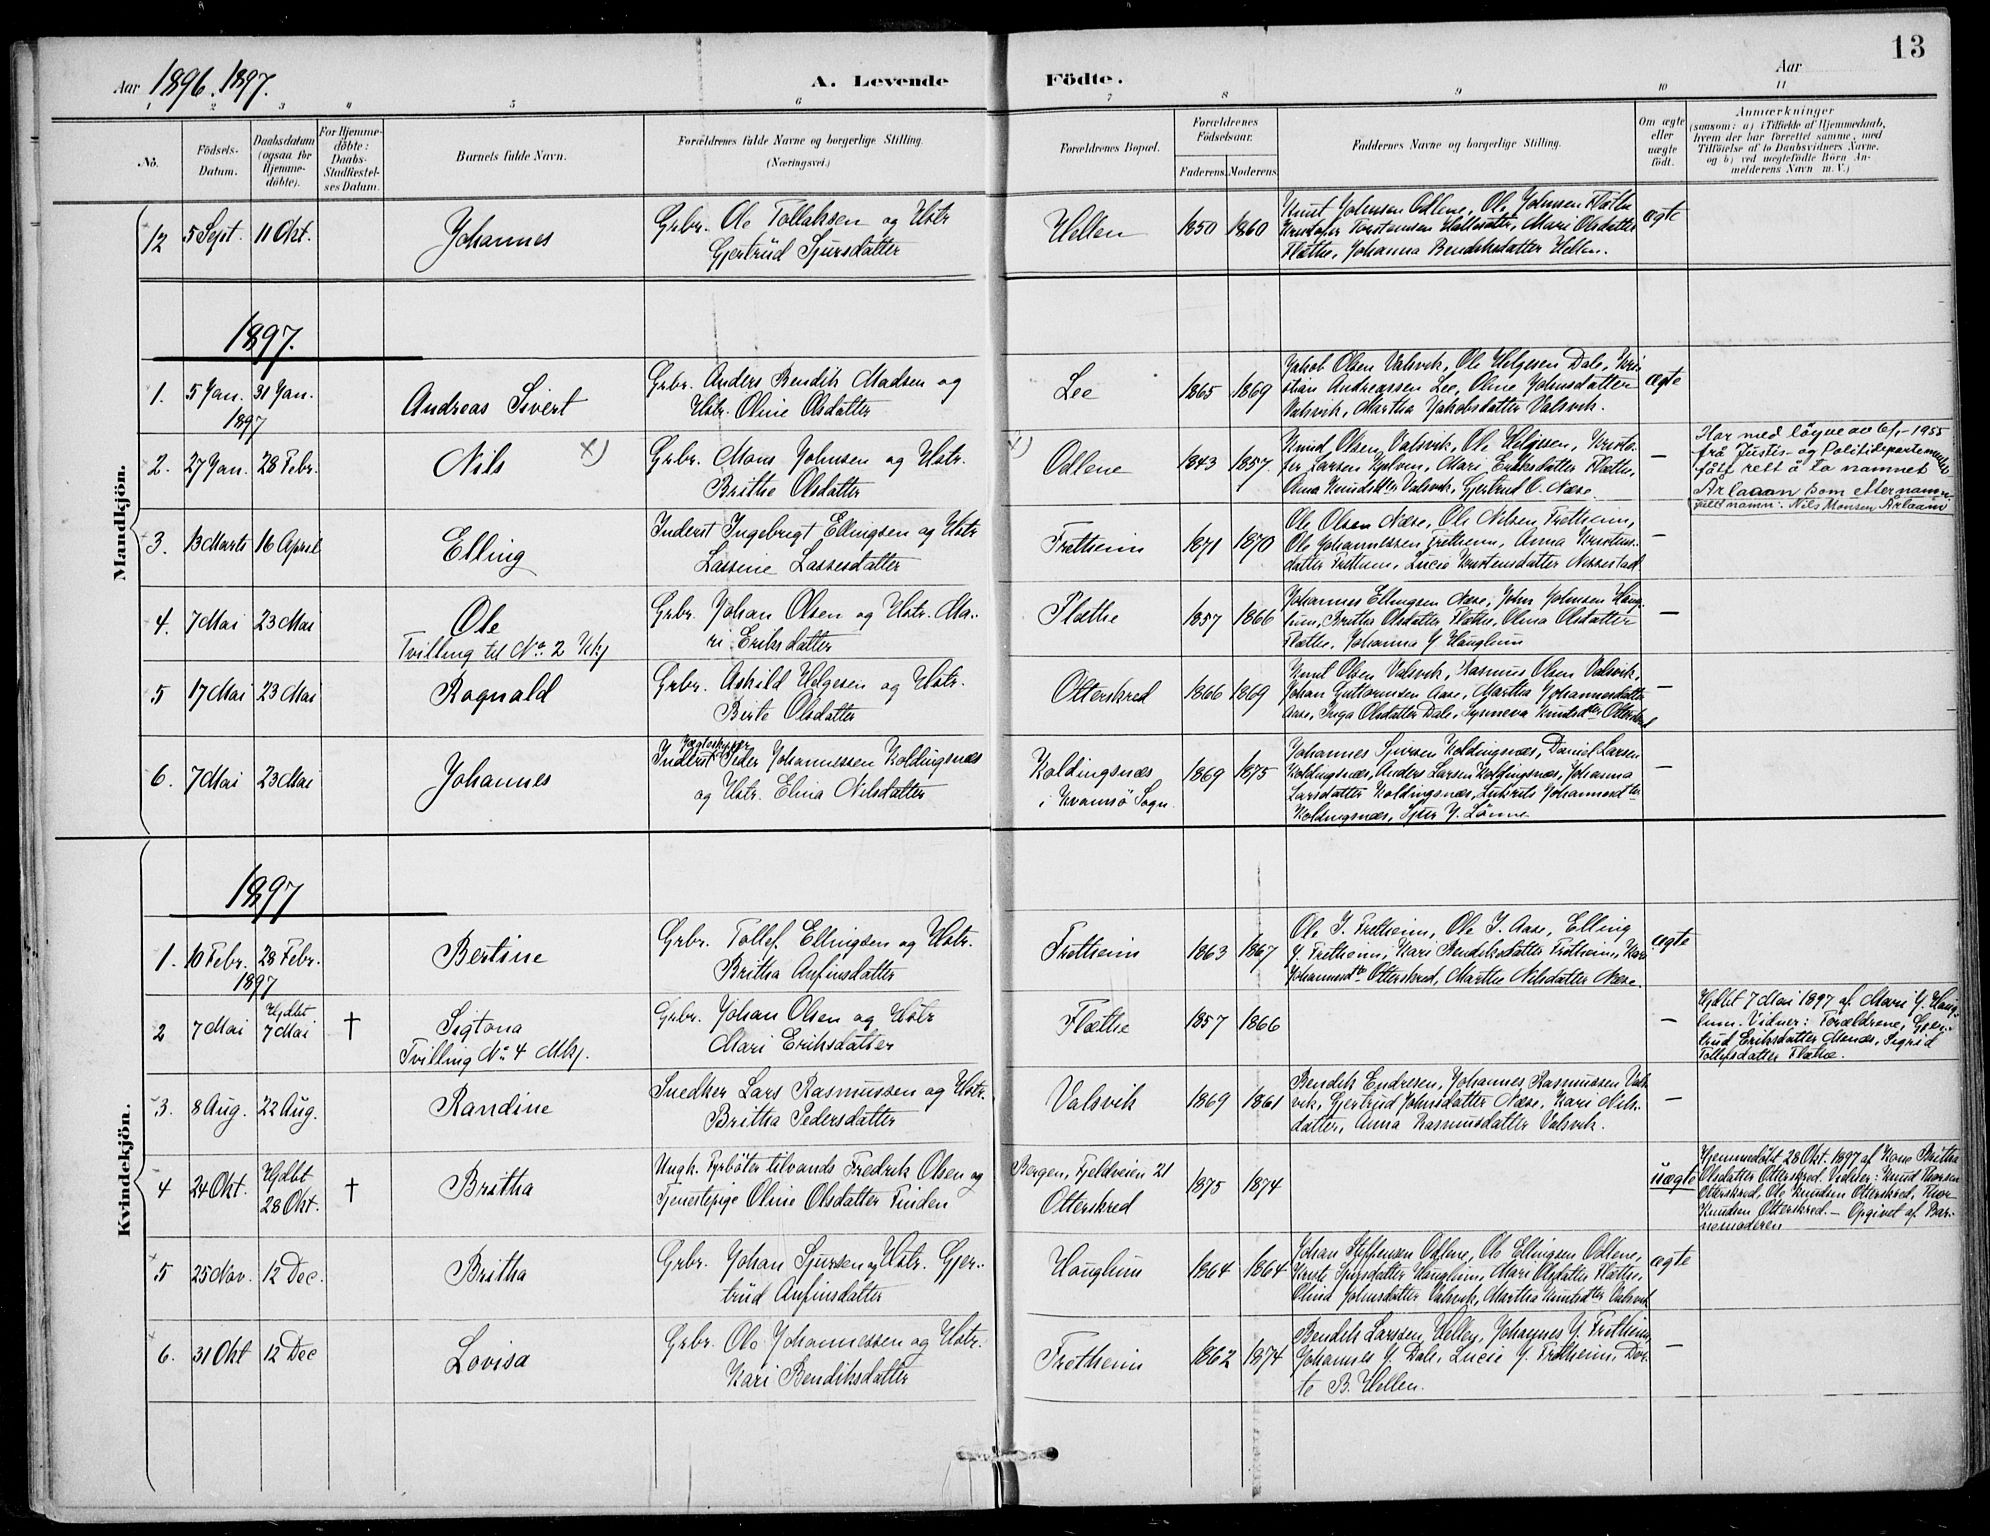 13
Aar 1896. 1897.
A. Levende Födte.
Aar
1 2 3 4 5 6 7 8 9 10 11
No.
Födsels-Datum.
Daabsdatum (ogsaa for Hjemme-döbte).
For Hjemme-döbte: Daabs-Stadfæstelses Datum.
Barnets fulde Navn.
Forældrenes fulde Navne og borgerlige Stilling. (Næringsvei.)
Forældrenes Bopæl.
Forældrenes Födselsaar.
Faderens. Moderens.
Faddernes Navne og borgerlige Stilling.
Om ægte eller uægte födt.
Anmærkninger
(saasom: a) i Tilfælde af Hjemmedaab, hvem der har forrettet samme, med Tilföielse af to Daabsvidners Navne, og b) ved uægtefödte Börn Anmelderens Navn m. V.)
Mandkjön.
12 5 Sept. 11 Okt. Johannes
Grbr. Ole Tollaksen og Hstr
Gjertrud Sjursdatter
Hellen 1850 1860
Knut Johnsen Odlene, Ole Johnsen Flæthe
Kristofer Torstensen Hallsæter, Mari Olsdatter
Flæthe, Johanna Bendiksdatter Hellen.
ægte
1897.
1. 5 Jan. 31 Jan. Andreas Sivert
1897
Grbr. Anders Bendik Madsen og
Hstr. Oline Olsdatter
Lee 1865 1869
Jakob Olsen Valsvik, Ole Helgesen Dale, Kri-
stian Andreassen Lee, Oline Johnsdatter
Valsvik, Martha Jakobsdatter Valsvik.
ægte
2. 27 Jan. 28 Febr. Nils x)
Grbr. Mons Johnsen og Hstr.
Brithe Olsdatter
x) Odlene 1843 1857
Knud Olsen Valsvik, Ole Helgesen, Kristo-
fer Larsen Hjelven, Mari Eriksdatter Flæthe,
Anna Knudsdtr Valsvik, Gjertrud O. Næse
—
Har med löyve av 6/1-1955
frå Justis- og Politidepartementet
fått rett å ta namnet
Årlaam som etternamn
Fullt namn: Nils Monsen Årlaam
3. 13 Marts 16 April Elling
Inderst Ingebrigt Ellingsen og Hstr
Lassine Lassesdatter
Fretheim 1871 1870
Ole Olsen Næse, Ole Nilsen Fretheim,
Ole Johannessen Fretheim, Anna Kristians-
datter Fretheim, Lucie Kristensdatter Nessestad
—
4. 7 Mai 23 Mai Ole
Tvilling til No. 2 Kkj
Grbr. Johan Olsen og Hstr. Ma-
ri Eriksdatter
Flæthe 1857 1866
Johannes Ellingsen Næse, John Johnsen Haug-
lum, Brithe Olsdatter Flæthe, Olina Olsdatter
Flæthe, Johanna J Hauglum
—
5 17 Mai 23 Mai Ragnald
Grbr. Askild Helgesen og Hstr.
Berte Olsdatter
Otterskred 1866 1869
Knut Olsen Valsvik, Rasmus Olsen Valsvik,
Johan Guttormsen Aase, Martha Johannesdatter
Aase, Inga Olsdatter Dale, Synneva Knutsdtr Otterskred
—
6. 7 Mai 23 Mai Johannes
Inderst Peder Johannessen Koldingsnæs
og Hstr. Elina Nilsdatter
Koldingsnæs
i Kvamsö Sogn.
1869 1875
Johannes Sjursen Koldingsnæs, Daniel Larsen
Koldingsnæs, Anders Larsen Koldingsnæs, Johanna
Larsdatter Koldingsnæs, Johannesdtr
Koldingsnæs, Sjur J. Lönne
—
Kvindekjön.
1897
1. 10 Febr. 28 Febr. Bertine
1897
Grbr. Tollef Ellingsen og Hstr.
Britha Anfinsdatter
Fretheim 1863 1867
Ole I. Fretheim, Ole I. Aase, Elling
J. Fretheim, Kari Bendiksdatter Fretheim, Kari
Johannesdtr Otterskred, Marthe Nilsdatter Næse.
ægte
2 7 Mai Hjdbt 7 Mai † Sigtona
Tvilling No. 4 Mkj.
Grbr. Johan Olsen og Hstr
Mari Eriksdatter
Flæthe 1857 1866
—
Hjdbt 7 Mai 1897 af Mari J. Haug-
lum. Vidner: Forældrene, Gjer-
trud Eriksdatter Menæs, Sigrid
Tollefsdatter Flæthe.
3. 8 Aug. 22 Aug. Randine
Snedker Lars Rasmussen og Hstr.
Britha Pedersdatter
Valsvik 1869 1861
Bendik Endresen, Johannes Rasmussen Vals-
vik, Gjertrud Johnsdatter Næse, Kari Nils-
datter, Anna Rasmusdatter Valsvik.
—
4 24 Okt. Hjdbt 28 Okt. † Britha
Ungk. Fyrböter tilvands Fredrik Olsen og
Tjenestepige Oline Olsdatter Finden
Bergen, Fjeldveien 21
Otterskred
1875 1874
uægte
Hjemmedöbt 28 Okt. 1897 af Kone Britha
Olsdatter Otterskred. Vidner: Knud Thorsen
Otterskred, Ole Knudsen Otterskred, Thor
Knudsen Otterskred. — Opgivet af Bar-
nemoderen
5 25 Nov. 12 Dec. Britha
Grbr. Johan Sjursen og Hstr. Gjer-
trud Anfinsdatter
Hauglum 1864 1864
Johan Steffensen Odlene, Ole Ellingsen Odlene,
Kriste Sjursdatter Hauglum, Mari Olsdatter Flæthe,
Olina Johnsdatter Valsvik, Martha Knutsdtr Valsvik
ægte
6. 31 Okt 12 Dec Lovisa
Grbr. Ole Johannessen og Hstr.
Kari Bendiksdatter
Fretheim 1862 1874
Bendik Larssen Hellen, Johannes J. Fretheim
Johannes J. Dale, Lucie J. Fretheim, Dor-
te B. Hellen.
—